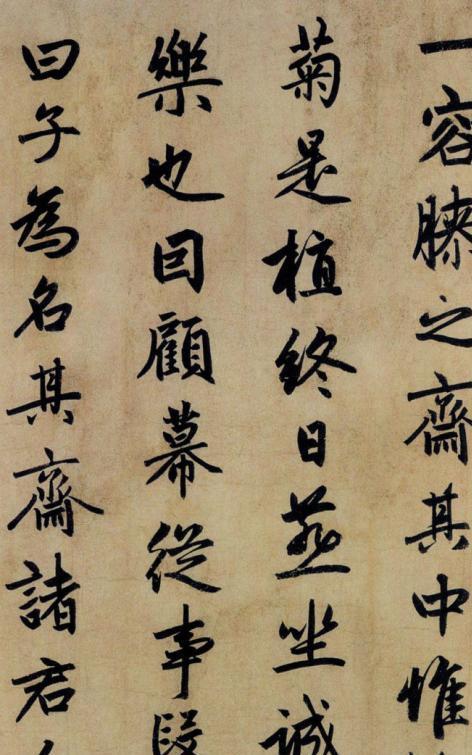 一容膝之齋其中惟
菊是植終日燕坐誠
樂也回顧幕從事段
曰子為名其齋諸君